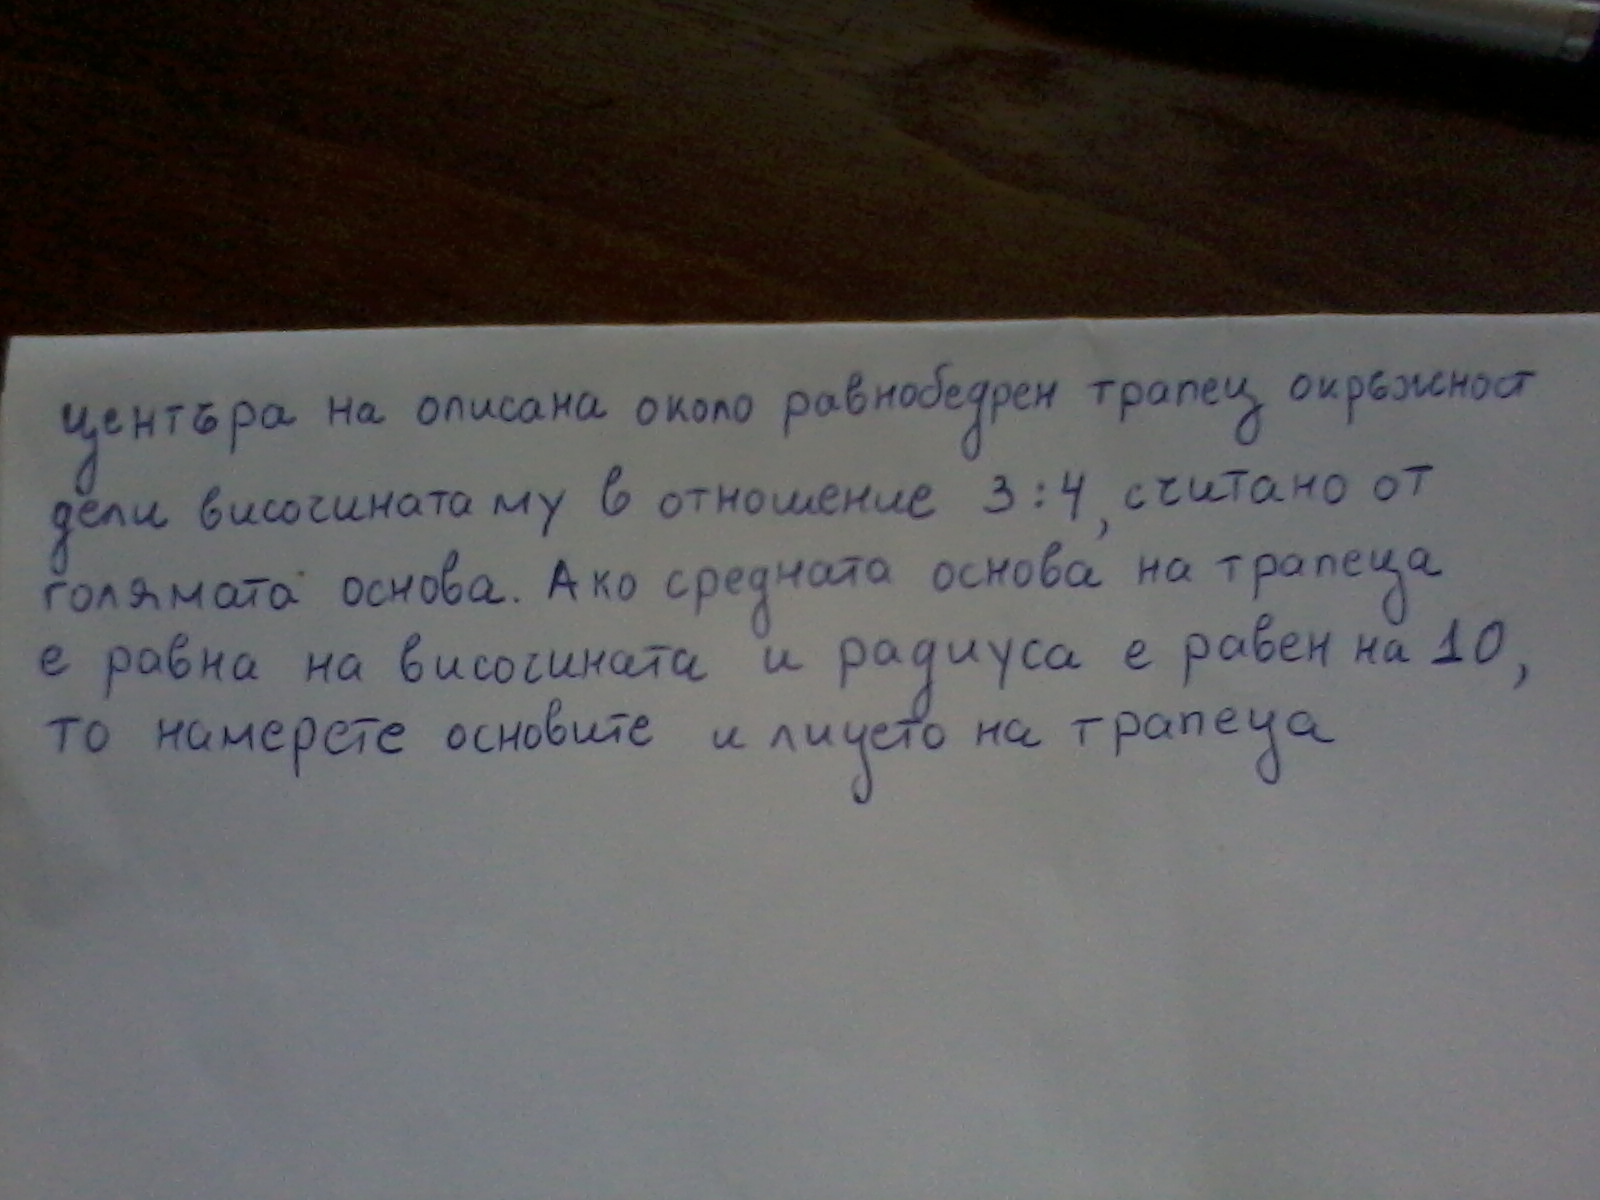 центъра на описана около равнобедрен трапец окръжност
дели височината му в отношение 3:4, считано от
голямата основа. Ако средната основа на трапеца
е равна на височината и радиуса е равен на 10,
то намерете основите и лицето на трапеца